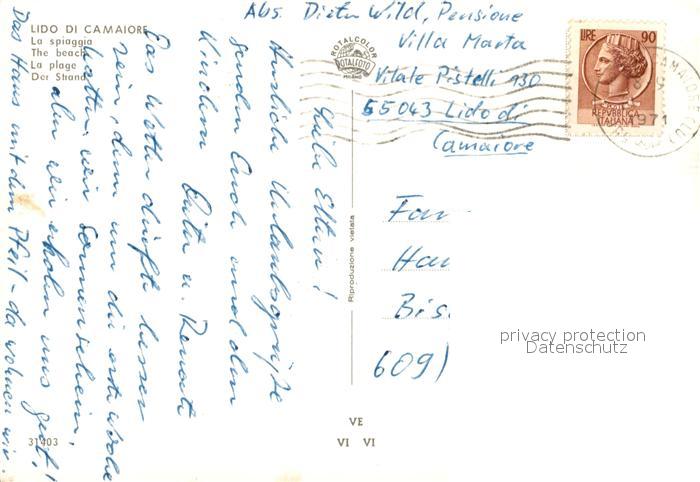 LIDO DI CAMAIORE
La spiaggia
The beach
La plage
Der Strand
Abs. Dieter Wild, Pensione
Villa Marta
Vitale Pistelli 130
55043 Lido di
Camaiore
ROTALCOLOR
ROTALFOTO
MILANO
LIRE 90
REPUBBLICA
ITALIANA
1971
Liebe Eltern!
Herzliche Urlaubsgrüße
senden Euch und den
Kindern
Dieter u. Renate
Das Wetter dürfte besser
sein, denn nur die erste Woche
hatten wir Sonnenschein,
aber wir erholen uns gut!
Das Haus mit dem Pfeil - da wohnen wir.
Riproduzione vietata
Fam
Han
Bis
609)
privacy protection
Datenschutz
31403
VE
VI VI